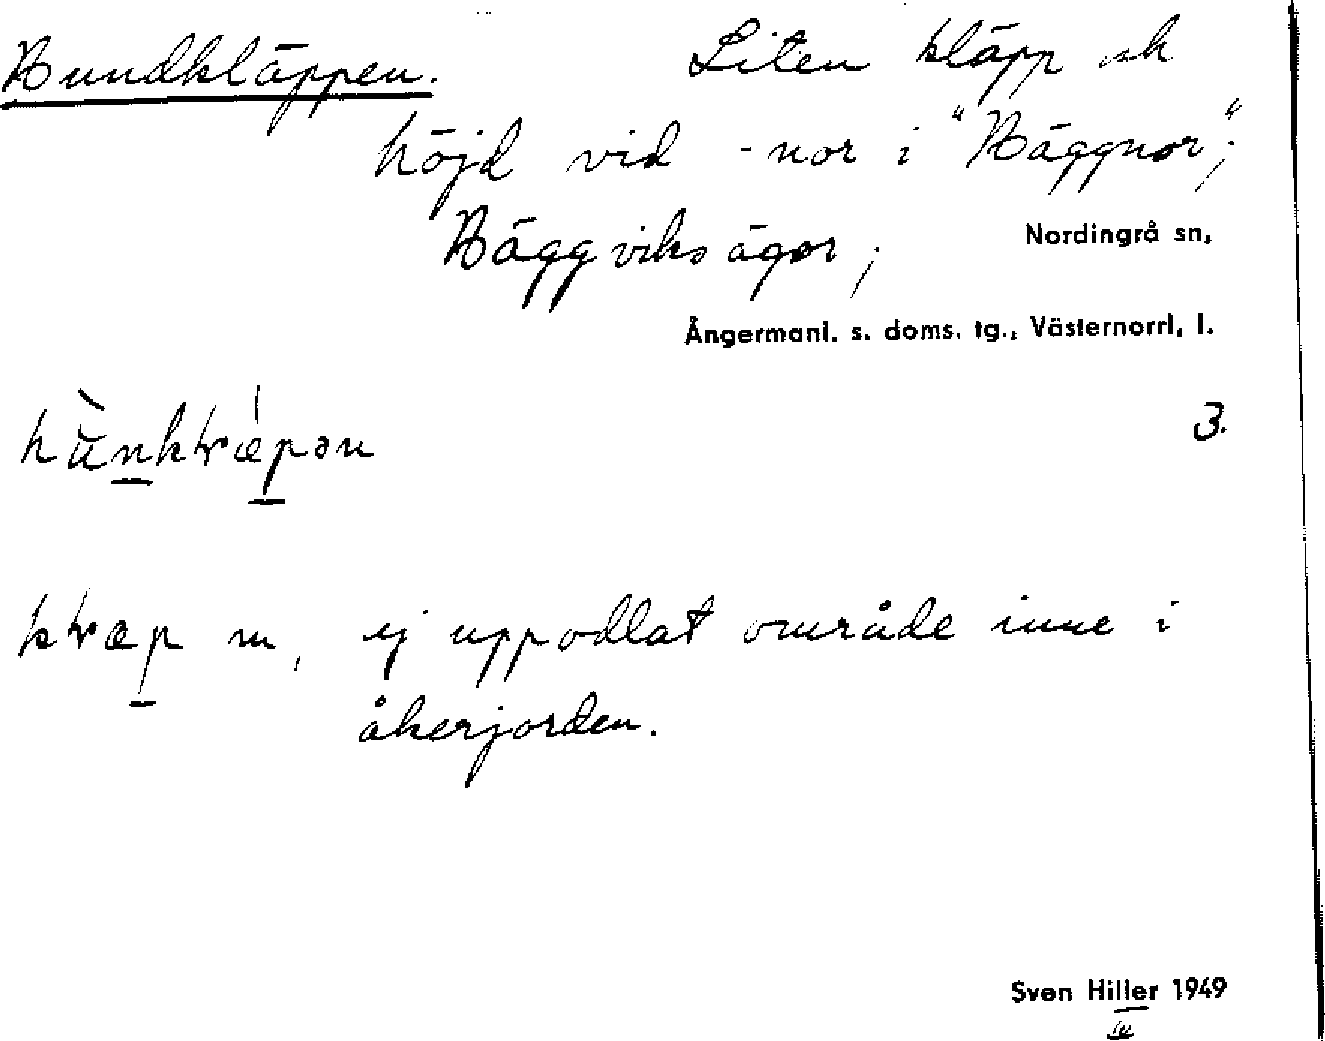 Hundkläppen. Liten kläpp och
höjd vid -nor i "Häggnor";
Häggviks ägor; Nordingrå sn,
Ångermanl. s. doms. tg., Västernorrl. l.
hùn̲kɽæ̍p̲ən 3.
kɽæp̲ m, ej uppodlat område inne i
åkerjorden.
Sven Hiller 1949